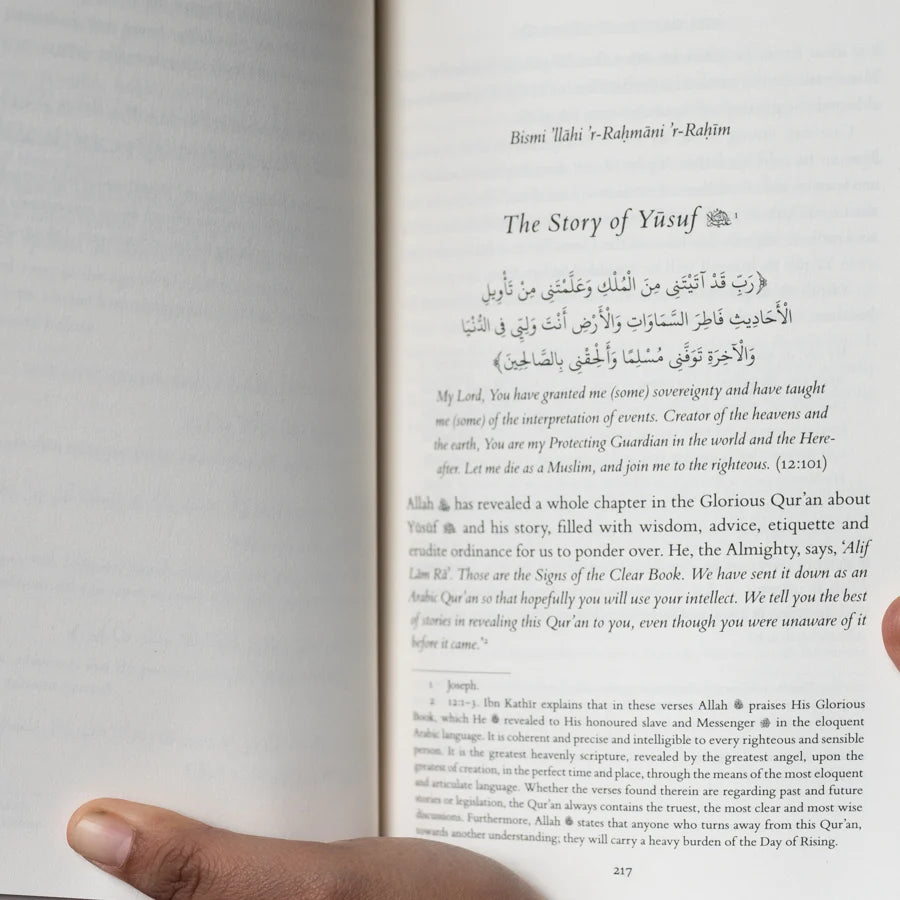 Bismi 'llāhi 'r-Raḥmāni 'r-Raḥīm
The Story of Yūsuf 1
﴿رَبِّ قَدْ آتَيْتَنِى مِنَ الْمُلْكِ وَعَلَّمْتَنِى مِنْ تَأْوِيلِ
الْأَحَادِيثِ فَاطِرَ السَّمَاوَاتِ وَالْأَرْضِ أَنْتَ وَلِيِّى فِى الدُّنْيَا
وَالْآخِرَةِ تَوَفَّنِى مُسْلِمًا وَأَلْحِقْنِى بِالصَّالِحِينَ﴾
My Lord, You have granted me (some) sovereignty and have taught
me (some) of the interpretation of events. Creator of the heavens and
the earth, You are my Protecting Guardian in the world and the Here-
after. Let me die as a Muslim, and join me to the righteous. (12:101)
Allah has revealed a whole chapter in the Glorious Qur'an about
Yūsuf and his story, filled with wisdom, advice, etiquette and
erudite ordinance for us to ponder over. He, the Almighty, says, 'Alif
Lām Rā'. Those are the Signs of the Clear Book. We have sent it down as an
Arabic Qur'an so that hopefully you will use your intellect. We tell you the best
of stories in revealing this Qur'an to you, even though you were unaware of it
before it came.'2
1 Joseph.
2 12:1–3. Ibn Kathīr explains that in these verses Allah praises His Glorious
Book, which He revealed to His honoured slave and Messenger in the eloquent
Arabic language. It is coherent and precise and intelligible to every righteous and sensible
person. It is the greatest heavenly scripture, revealed by the greatest angel, upon the
greatest of creation, in the perfect time and place, through the means of the most eloquent
and articulate language. Whether the verses found therein are regarding past and future
stories or legislation, the Qur'an always contains the truest, the most clear and most wise
discussions. Furthermore, Allah states that anyone who turns away from this Qur'an,
towards another understanding; they will carry a heavy burden of the Day of Rising.
217